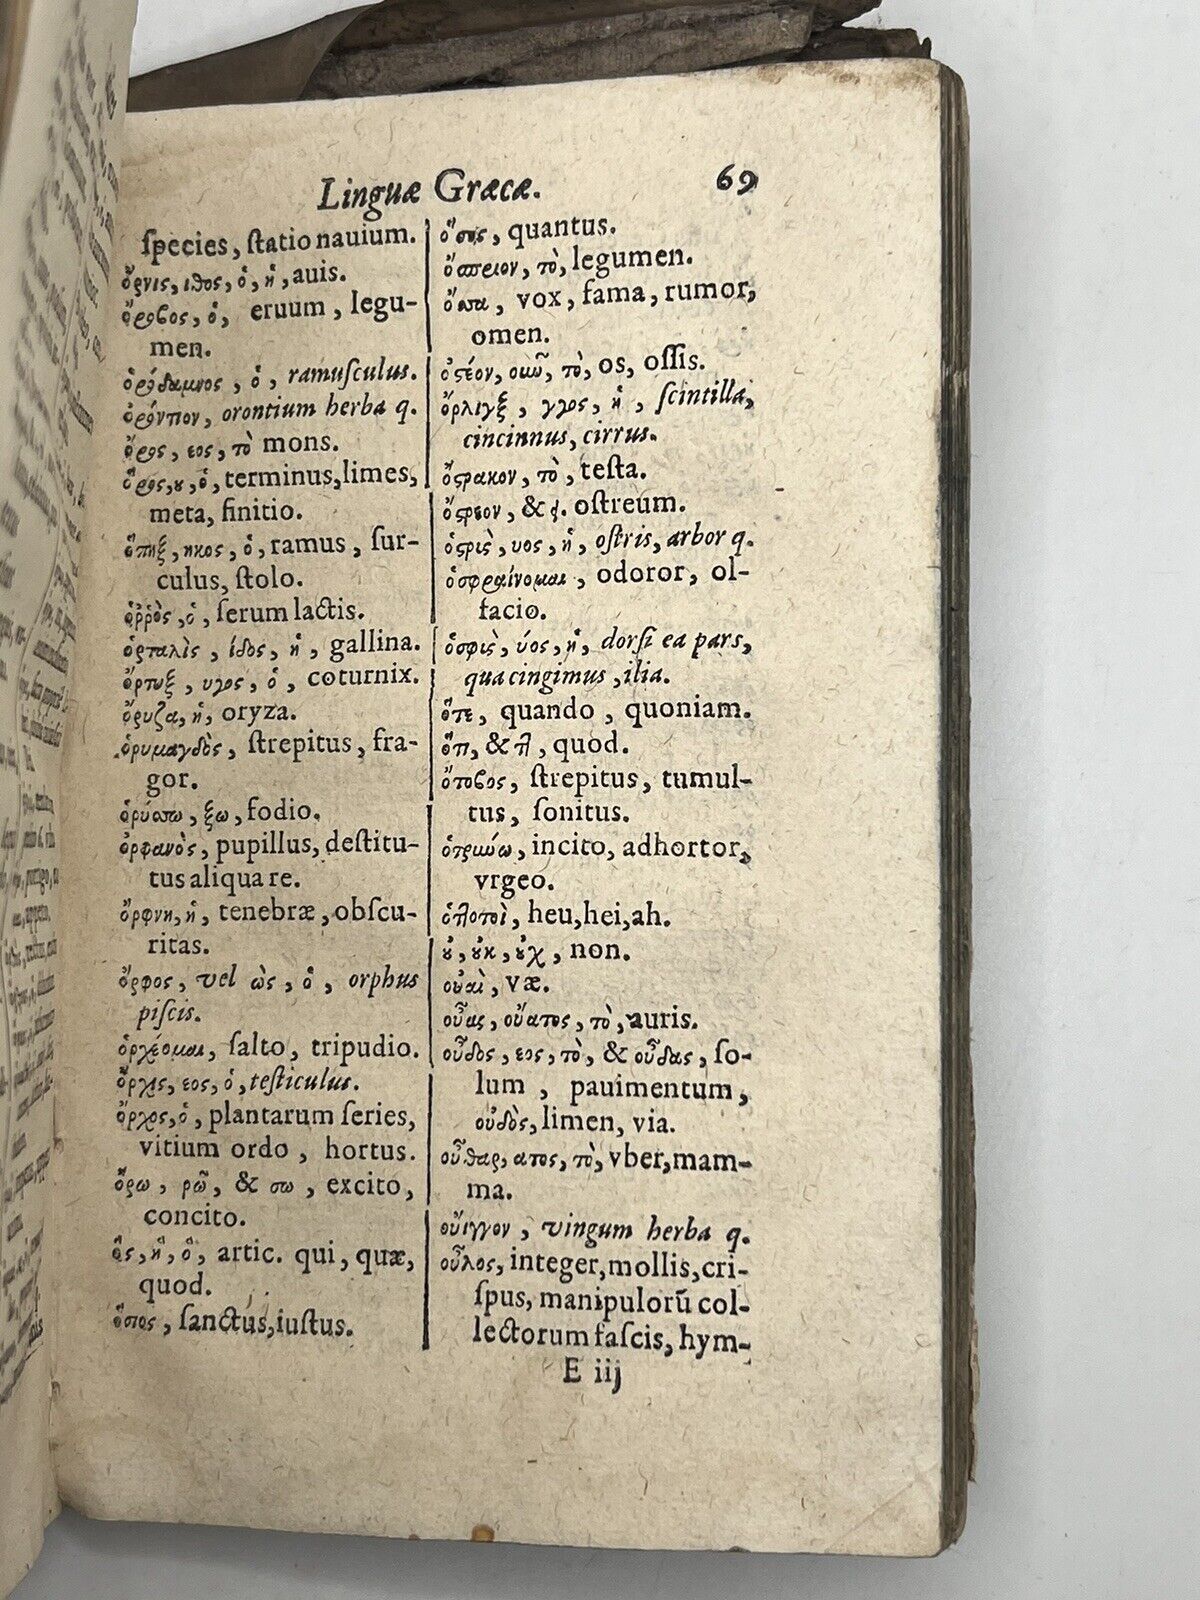 Linguæ Græcæ. 69
ſpecies, ſtatio nauium.
ὄρνις, ιθος, ὁ, ἡ, auis.
ὄροβος, ὁ, eruum, legu-
men.
ὀρόδαμνος, ὁ, ramuſculus.
ὀρόντιον, orontium herba q.
ὄρος, εος, τὸ mons.
ὅρος, ου, ὁ, terminus, limes,
meta, finitio.
ὅρπηξ, ηκος, ὁ, ramus, ſur-
culus, ſtolo.
ὀῤῥὸς, ὁ, ſerum lactis.
ὀρταλὶς, ίδος, ἡ, gallina.
ὄρτυξ, υγος, ὁ, coturnix.
ὄρυζα, ἡ, oryza.
ὀρυμαγδὸς, ſtrepitus, fra-
gor.
ὀρύσσω, ξω, fodio.
ὀρφανὸς, pupillus, deſtitu-
tus aliqua re.
ὄρφνη, ἡ, tenebræ, obſcu-
ritas.
ὄρφος, vel ὼς, ὁ, orphus
piſcis.
ὀρχέομαι, ſalto, tripudio.
ὄρχις, εος, ὁ, teſticulus.
ὄρχος, ὁ, plantarum ſeries,
vitium ordo, hortus.
ὄρω, ρῶ, & σω, excito,
concito.
ὃς, ἣ, ὃ, artic. qui, quæ,
quod.
ὅσιος, ſanctus, iuſtus.
ὅσος, quantus.
ὄσπριον, τὸ, legumen.
ὄσσα, vox, fama, rumor,
omen.
ὀστέον, οῦν, τὸ, os, oſſis.
ὄρλιγξ, γγος, ἡ, ſcintilla,
cincinnus, cirrus.
ὄστρακον, τὸ, teſta.
ὄστρεον, & ει. oſtreum.
ὀστρὶς, υος, ἡ, oſtris, arbor q.
ὀσφραίνομαι, odoror, ol-
facio.
ὀσφὺς, ύος, ἡ, dorſi ea pars,
qua cingimus, ilia.
ὅτε, quando, quoniam.
ὅτι, & τι, quod.
ὄτοβος, ſtrepitus, tumul-
tus, ſonitus.
ὀτρύνω, incito, adhortor,
vrgeo.
ὀττοτοὶ, heu, hei, ah.
οὐ, οὐκ, οὐχ, non.
οὐαὶ, væ.
οὖας, οὔατος, τὸ, auris.
οὖδος, εος, τὸ, & οὖδας, ſo-
lum, pauimentum,
οὐδὸς, limen, via.
οὖθαρ, ατος, τὸ, vber, mam-
ma.
οὔιγγον, vingum herba q.
οὖλος, integer, mollis, cri-
ſpus, manipulorũ col-
lectorum faſcis, hym-
E iij